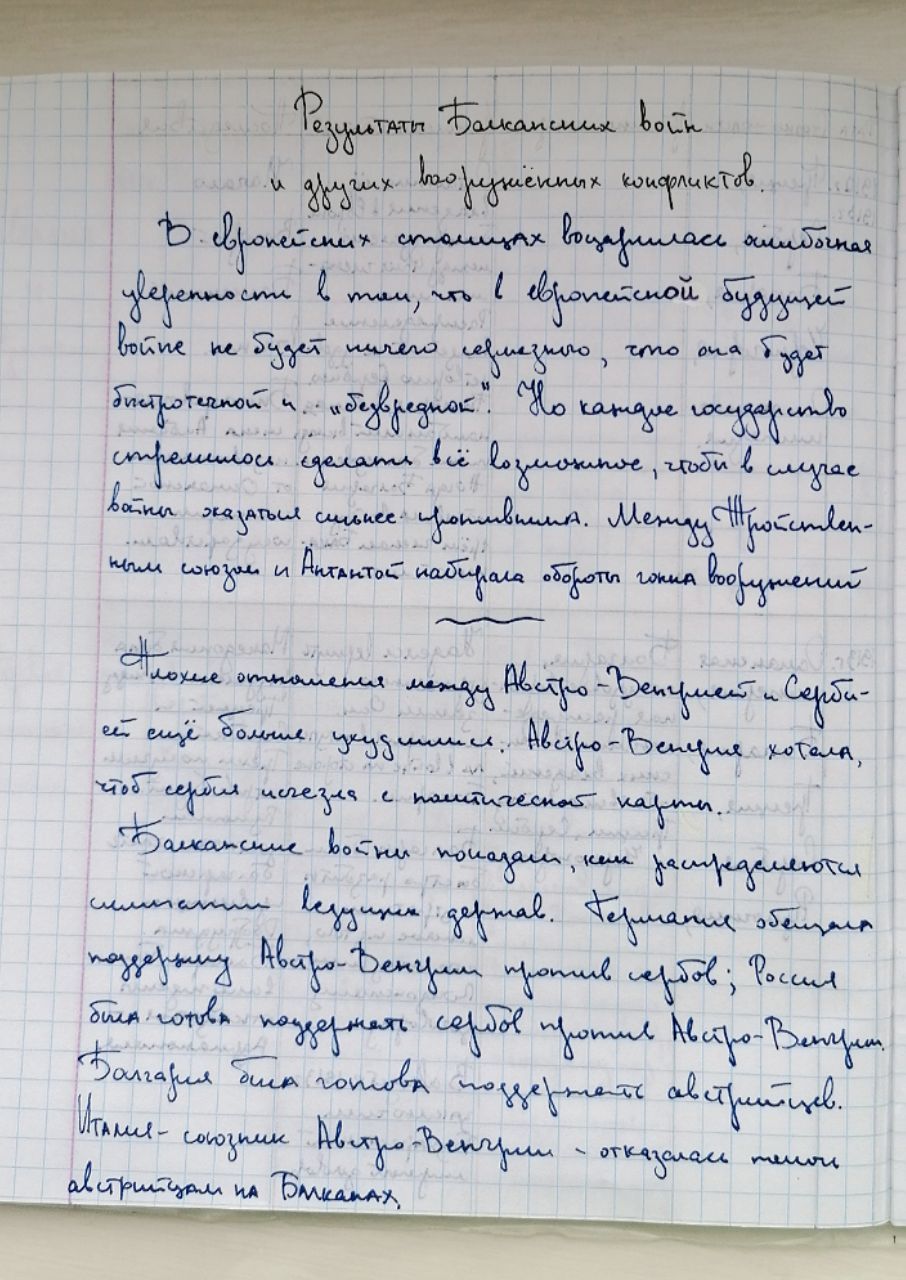 Результаты Балканских войн
и других вооружённых конфликтов.
В европейских столицах воцарилась ошибочная
уверенность в том, что в европейской будущей
войне не будет ничего серьезного, что она будет
быстротечной и „безвредной". Но каждое государство
стремилось сделать всё возможное, чтобы в случае
войны оказаться сильнее противника. Между Тройствен-
ным союзом и Антантой набирала обороты гонка вооружений
Плохие отношения между Австро-Венгрией и Серби-
ей ещё больше ухудшились. Австро-Венгрия хотела,
чтоб сербия исчезла с политической карты.
Балканские войны показали, как распределяются
симпатии ведущих держав. Германия обещала
поддержку Австро-Венгрии против сербов; Россия
была готова поддержать сербов против Австро-Венгрии.
Болгария была готова поддержать австрийцев.
Италия - союзник Австро-Венгрии - отказалась помочь
австрийцам на Балканах.